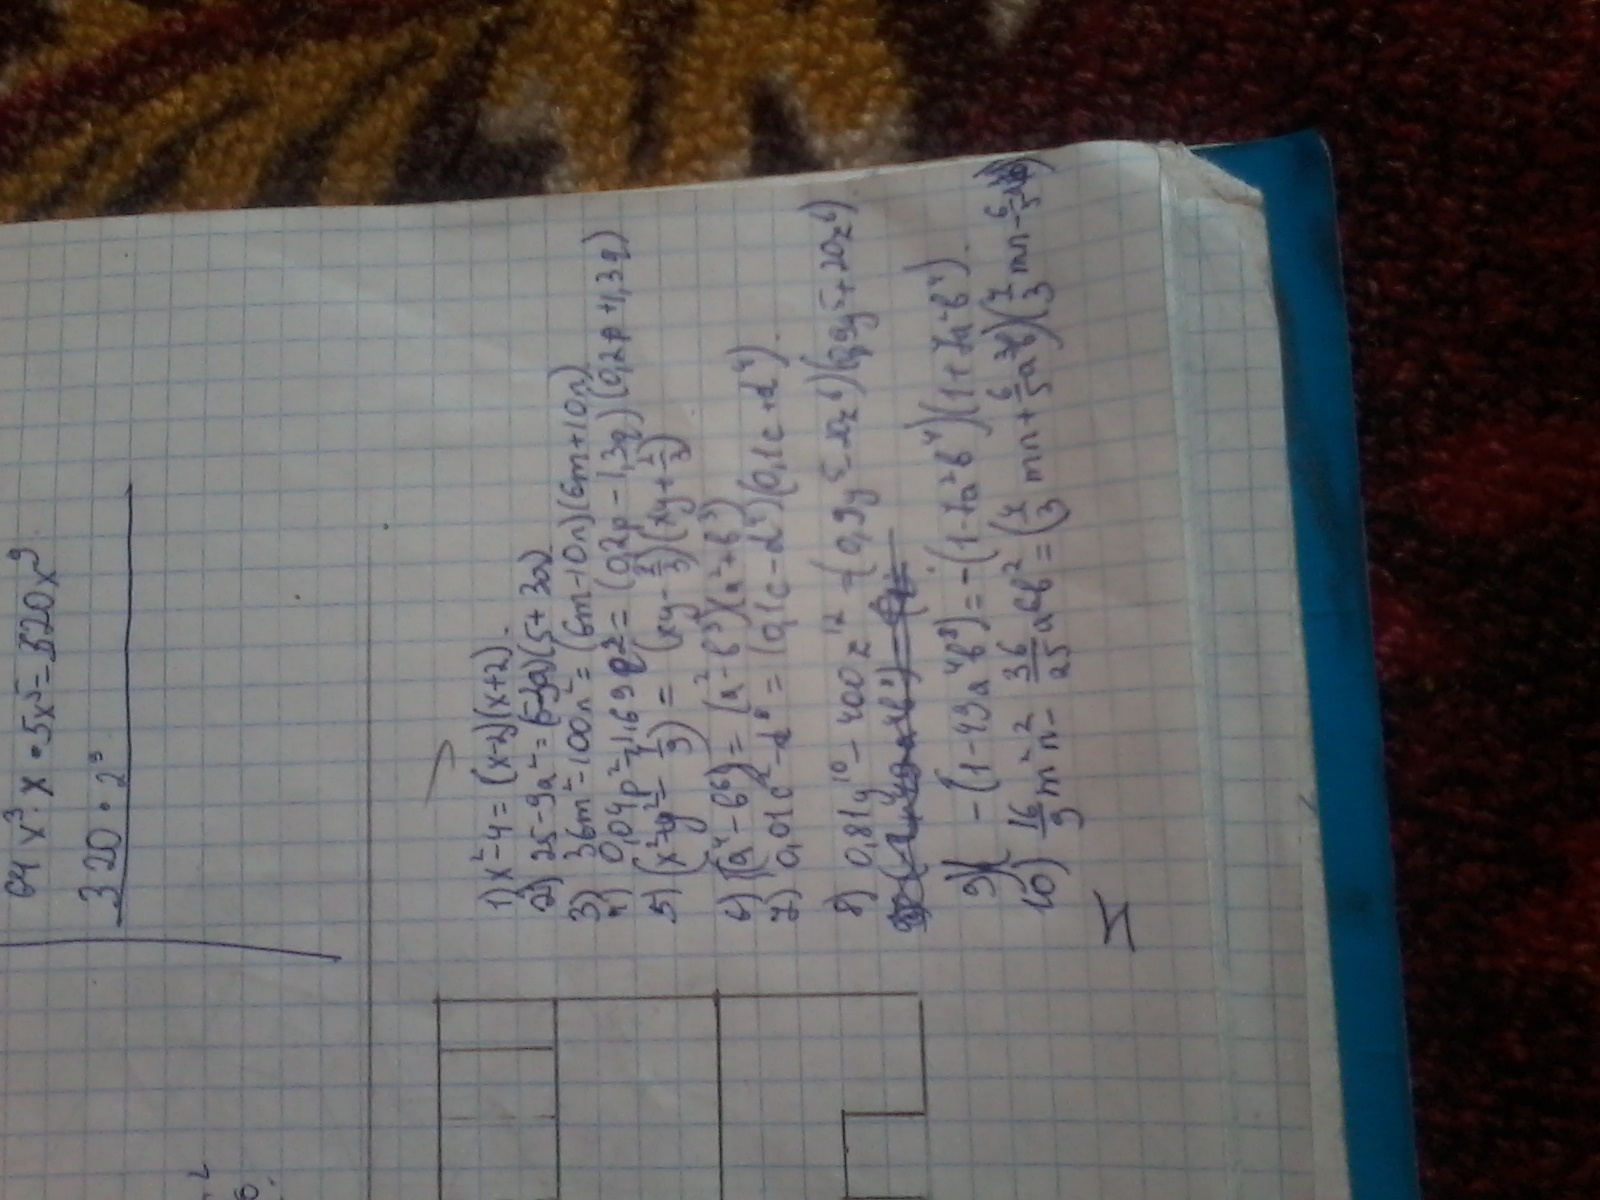 64 x³ · x · 5x⁵ = 320x⁹
320 · 2⁹
1) x² - 4 = (x-2)(x+2).
2) 25 - 9a² = (5-3a)(5+3a)
3) 36m² - 100n² = (6m-10n)(6m+10n)
4) 0,04p² - 1,69q² = (0,2p - 1,3q)(0,2p + 1,3q)
5) (x²y² - 1/9) = (xy - 1/3)(xy + 1/3)
6) (a⁴ - b⁶) = (a² - b³)(a² + b³)
7) 0,01c² - d⁸ = (0,1c - d⁴)(0,1c + d⁴).
8) 0,81y¹⁰ - 400z¹² = (0,9y⁵ - 20z⁶)(0,9y⁵ + 20z⁶)
9) -(1 - 49a⁴b⁸) = -(1 - 7a²b⁴)(1 + 7a²b⁴).
10) 16/9 m²n² - 36/25 ab² = (4/3 mn + 6/5 ab)(4/3 mn - 6/5